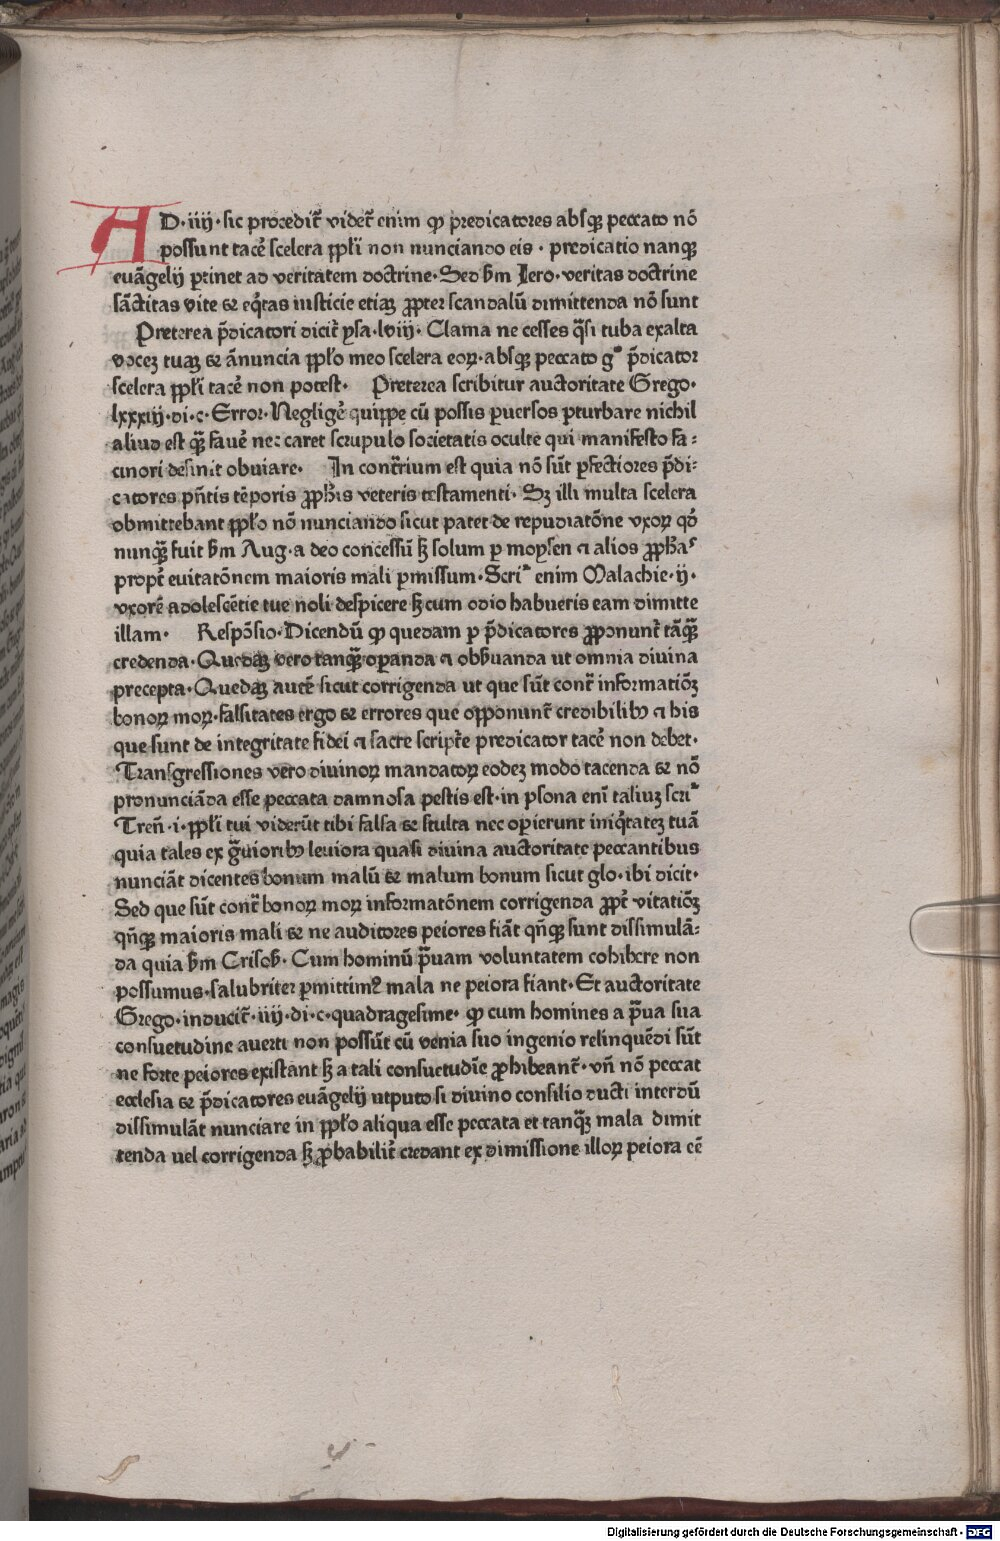 AD·iiij·sic procedit̄ videt̄ enim ꝙ predicatores absqꝫ peccato nō
possunt tacē scelera ppl̄i non nunciando eis · predicatio nanqꝫ
euāgelij ꝑtinet ad veritatem doctrine· Sed ẜm Iero· veritas doctrine
sāctitas vite & eq̄tas iusticie etiaꝫ ꝓpter scandalū dimittenda nō sunt
Preterea p̄dicatori dicit̄ ysa·lviij· Clama ne cesses q̄si tuba exalta
voceꝫ tuaꝫ & ānuncia ppl̄o meo scelera eoꝝ·absqꝫ peccato g° p̄dicator
scelera ppl̄i tacē non potest· Preterea scribitur auctoritate Grego·
lxxxiij·di·c·Error·Negligē quippe cū possis ꝑuersos ꝑturbare nichil
aliud est qꝫ̄ fauē nec caret scrupulo societatis occulte qui manifesto fa⸗
cinori desinit obuiare· In cont̄rium est quia nō sūt ꝑfectiores p̄di⸗
catores pn̄tis tēporis ꝓph̄is veteris testamenti· Sꝫ illi multa scelera
obmittebant ppl̄o nō nunciando sicut patet de repudiatōne vxoꝝ qd̄
nunqꝫ̄ fuit ẜm Aug·a deo concessū sꝫ solum ꝑ moysen ⁊ alios ꝓph̄as
propt̄ euitatōnem maioris mali ꝑmissum·Scri͂ enim Malachie·ij·
vxorē adolescētie tue noli despicere sꝫ cum odio habueris eam dimitte
illam· Respōsio·Dicendū ꝙ quedam ꝑ p̄dicatores ꝓponunt̄ tāqꝫ̄
credenda·Quedaꝫ vero tanqꝫ̄ oꝑanda ⁊ obẜuanda ut omnia diuina
precepta·Quedaꝫ autē sicut corrigenda ut que sūt cont̄ informatiōꝫ
bonoꝝ moꝝ·falsitates ergo & errores que opponunt̄ credibilibꝰ ⁊ his
que sunt de integritate fidei ⁊ sacre script̄e predicator tacē non debet·
Transgressiones vero diuinoꝝ mandatoꝝ eodeꝫ modo tacenda & nō
pronunciāda esse peccata damnosa pestis est·in ꝑsona eni͂ taliuꝫ scri͂
Tren̄·i·ppl̄i tui viderūt tibi falsa & stulta nec oꝑierunt iniq̄tateꝫ tuā
quia tales ex g̃uioribꝰ leuiora quasi diuina auctoritate peccantibus
nunciāt dicentes bonum malū & malum bonum sicut glo·ibi dicit·
Sed que sūt cont̄ bonoꝝ moꝝ informatōnem corrigenda ꝓpt̄ vitatiōꝫ
qn̄qꝫ maioris mali & ne auditores peiores fiāt qn̄qꝫ sunt dissimulā⸗
da quia ẜm Crisoẜ· Cum hominū p̄uam voluntatem cohibere non
possumus·salubriter ꝑmittimꝰ mala ne peiora fiant·Et auctoritate
Grego·inducit̄·iiij·di·c·quadragesime· ꝙ cum homines a p̄ua sua
consuetudine auerti non possūt cū venia suo ingenio relinquēdi sūt
ne forte peiores existant sꝫ a tali consuetudīe ꝓhibeant̄·vn̄ nō peccat
ecclesia & p̄dicatores euāgelij utputo si diuino consilio ducti interdū
dissimulāt nunciare in ppl̄o aliqua esse peccata et tanqꝫ̄ mala dimit
tenda uel corrigenda sꝫ ꝓbabilit̄ credant ex dimissione illoꝝ peiora cē
Digitalisierung gefördert durch die Deutsche Forschungsgemeinschaft · DFG